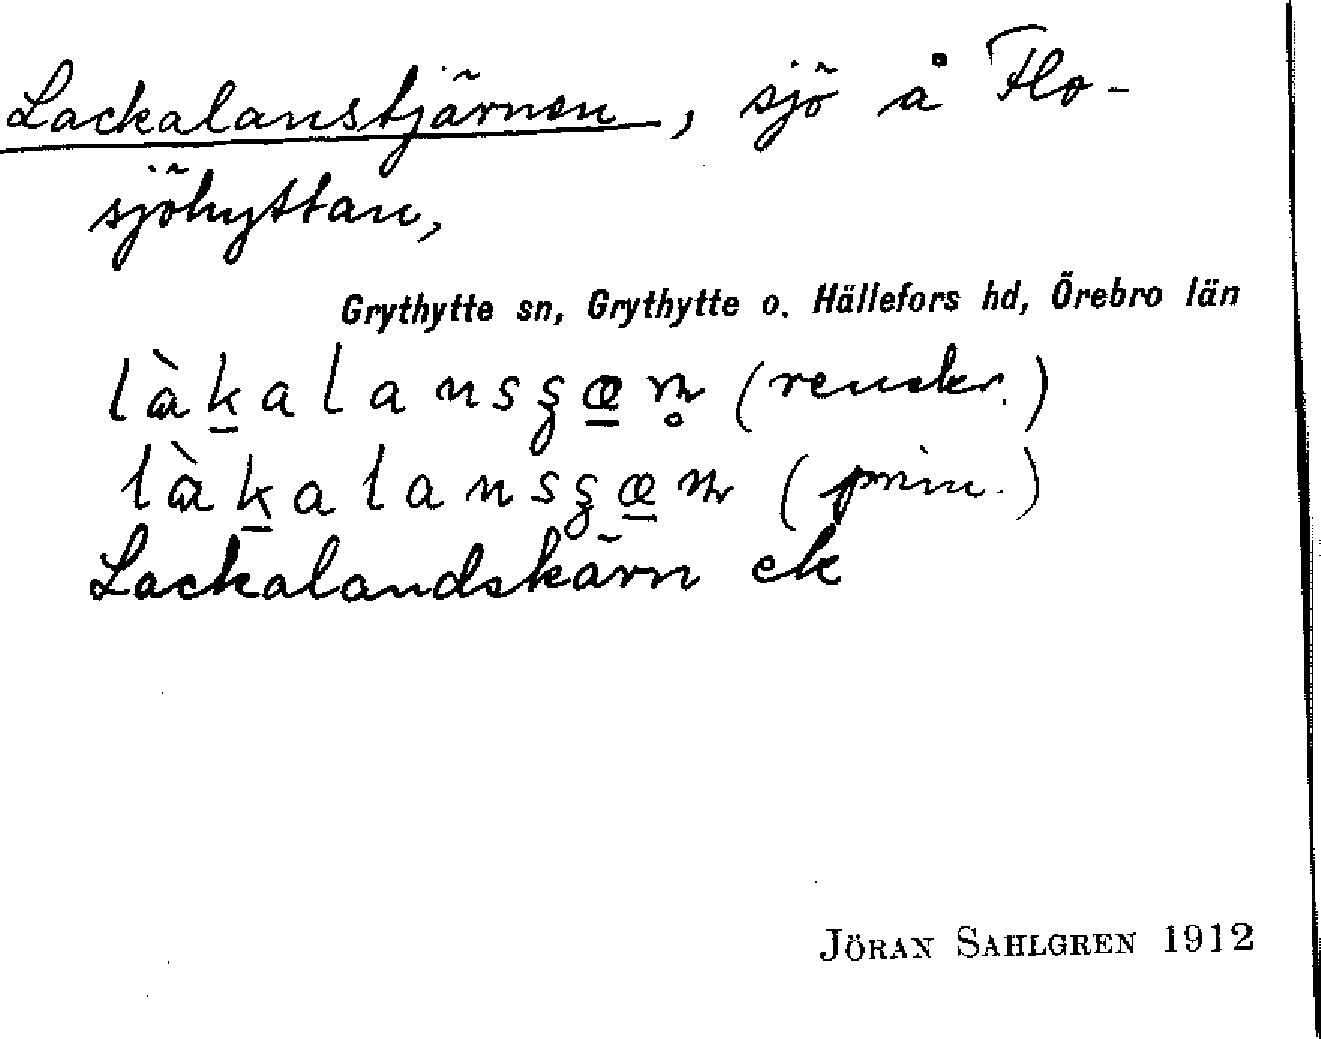 Lackalanstjärnen, sjö å Flo-
sjöhyttan,
Grythytte sn, Grythytte o. Hällefors hd, Örebro län
(renskr.)
(prim.)
Lackalandskärn ek
JÖRAN SAHLGREN 1912